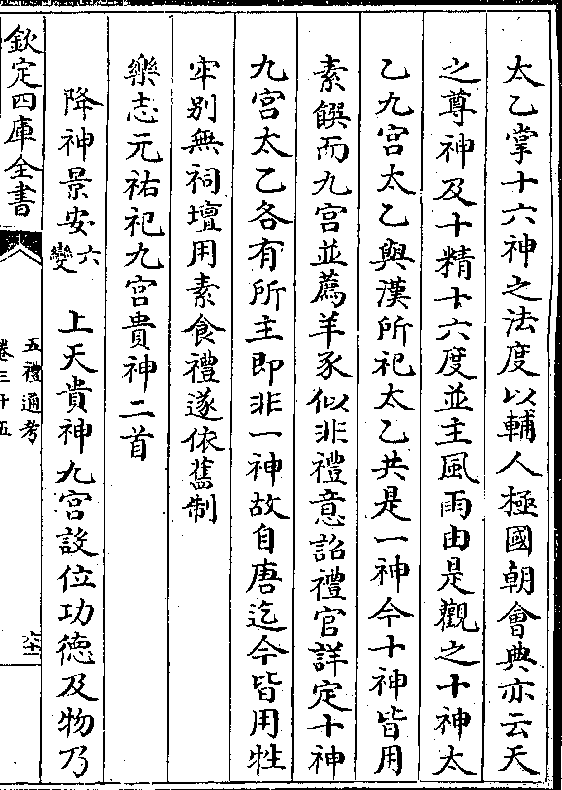 太乙掌十六神之法度以輔人極國朝會典亦云天
之尊神及十精十六度並主風雨由是觀之十神太
乙九宮太乙與漢所祀太乙共是一神今十神皆用
素饌而九宮並薦羊豕似非禮意詔禮官詳定十神
九宮太乙各有所主即非一神故自唐迄今皆用牲
牢別無祠壇用素食禮遂依舊制
樂志元祐祀九宮貴神二首
降神景安六變　上天貴神九宮設位功德及物乃
欽定四庫全書
五禮通考
卷三十五